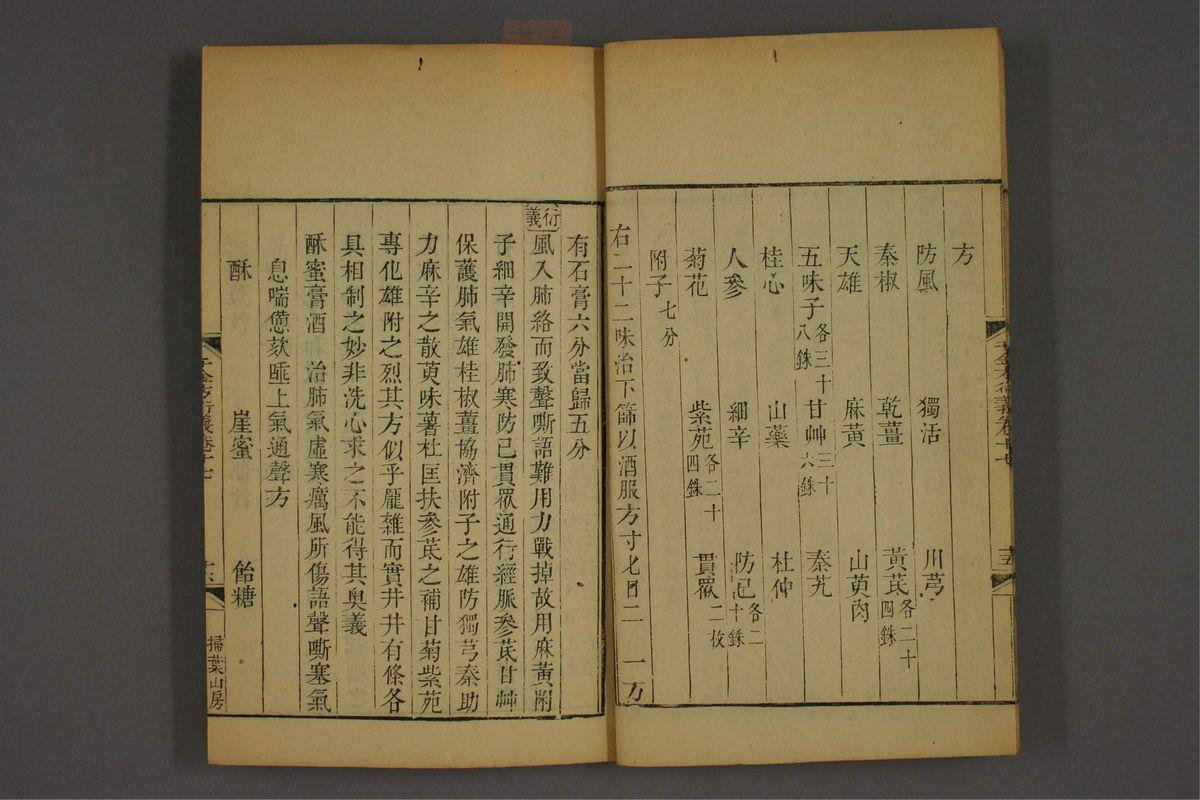 方
防風 獨活 川芎
秦椒 乾薑 黃芪各二十四銖
天雄 麻黃 山萸肉
五味子各三十八銖 甘艸三十六銖 秦艽
桂心 山藥 杜仲
人參 細辛 防己各二十銖
菊花 紫苑各二十四銖 貫眾二枚
附子七分
右二十二味治下篩以酒服方寸匕日二 一方
有石膏六分當歸五分
衍義 風入肺絡而致聲嘶語難用力戰掉故用麻黃附
子細辛開發肺寒防己貫眾通行經脈參芪甘艸
保護肺氣雄桂椒薑協濟附子之雄防獨芎秦助
力麻辛之散萸味著杜匡扶參芪之補甘菊紫苑
專化雄附之烈其方似乎龐雜而實井井有條各
具相制之妙非洗心求之不能得其奧義
酥蜜膏酒 治肺氣虛寒癘風所傷語聲嘶塞氣
息喘憊欬唾上氣通聲方
酥 崖蜜 飴糖
千金方衍義卷十七
掃葉山房